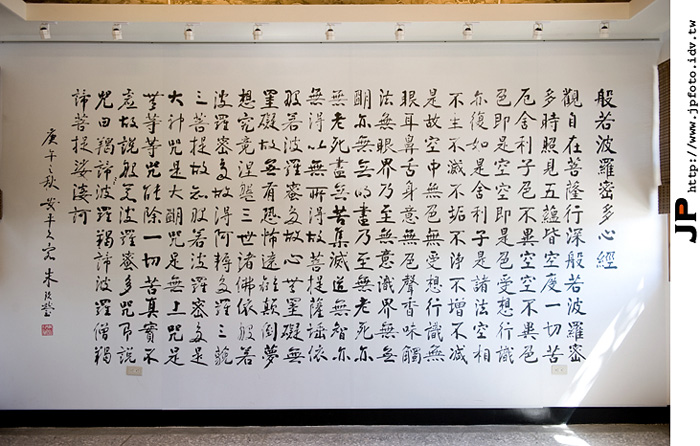 般若波羅密多心經
觀自在菩薩行深般若波羅密
多時照見五蘊皆空度一切苦
厄舍利子色不異空空不異色
色即是空空即是色受想行識
亦復如是舍利子是諸法空相
不生不滅不垢不淨不增不減
是故空中無色無受想行識無
眼耳鼻舌身意無色聲香味觸
法無眼界乃至無意識界無無
明亦無無明盡乃至無老死亦
無老死盡無苦集滅道無智亦
無得以無所得故菩提薩埵依
般若波羅密多故心無罣礙無
罣礙故無有恐怖遠離顛倒夢
想究竟涅槃三世諸佛依般若
波羅密多故得阿耨多羅三藐
三菩提故知般若波羅密多是
大神咒是大明咒是無上咒是
無等等咒能除一切苦真實不
虛故說般若波羅密多咒即說
咒曰羯諦々波羅羯諦波羅僧羯
諦菩提娑婆訶
庚午之秋安平久客朱玖瑩
JP http://www.jpfoto.idv.tw